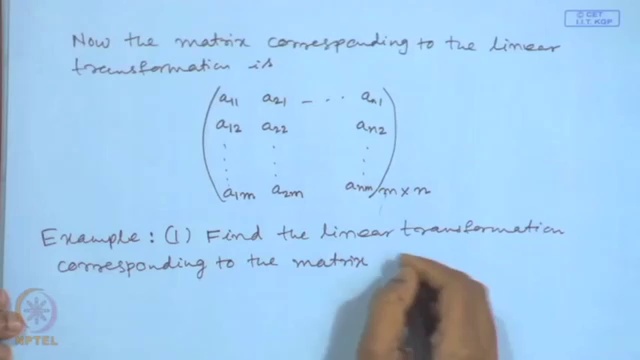 © CET
I.I.T. KGP
Now the matrix corresponding to the linear
transformation is
a11 a21 - - - an1
a12 a22 an2
⋮ ⋮ ⋮
a1m a2m anm m×n
Example: (1) Find the linear transformation
corresponding to the matrix
NPTEL